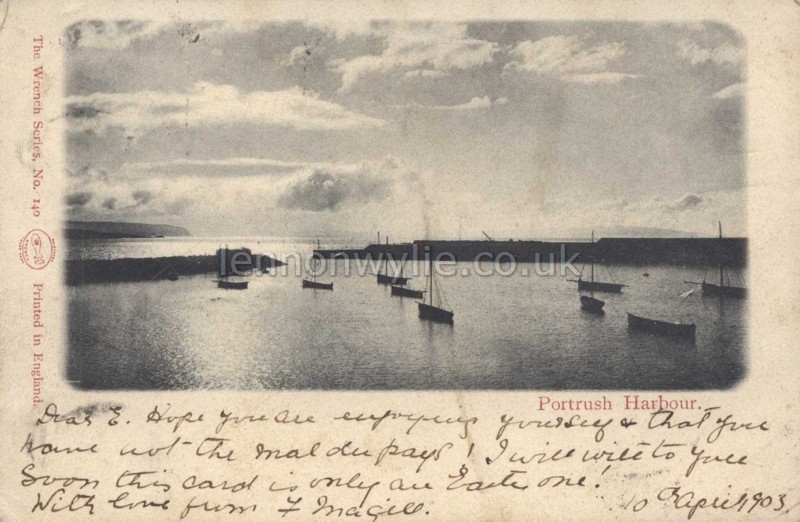 The Wrench Series, No. 140
Printed in England.
lennonwylie.co.uk
Portrush Harbour.
Dear E. Hope you are enjoying yourself & that you
have not the mal du pays! I will write to you
soon this card is only an Easter one!
With love from F Magill.
10th April 1903.